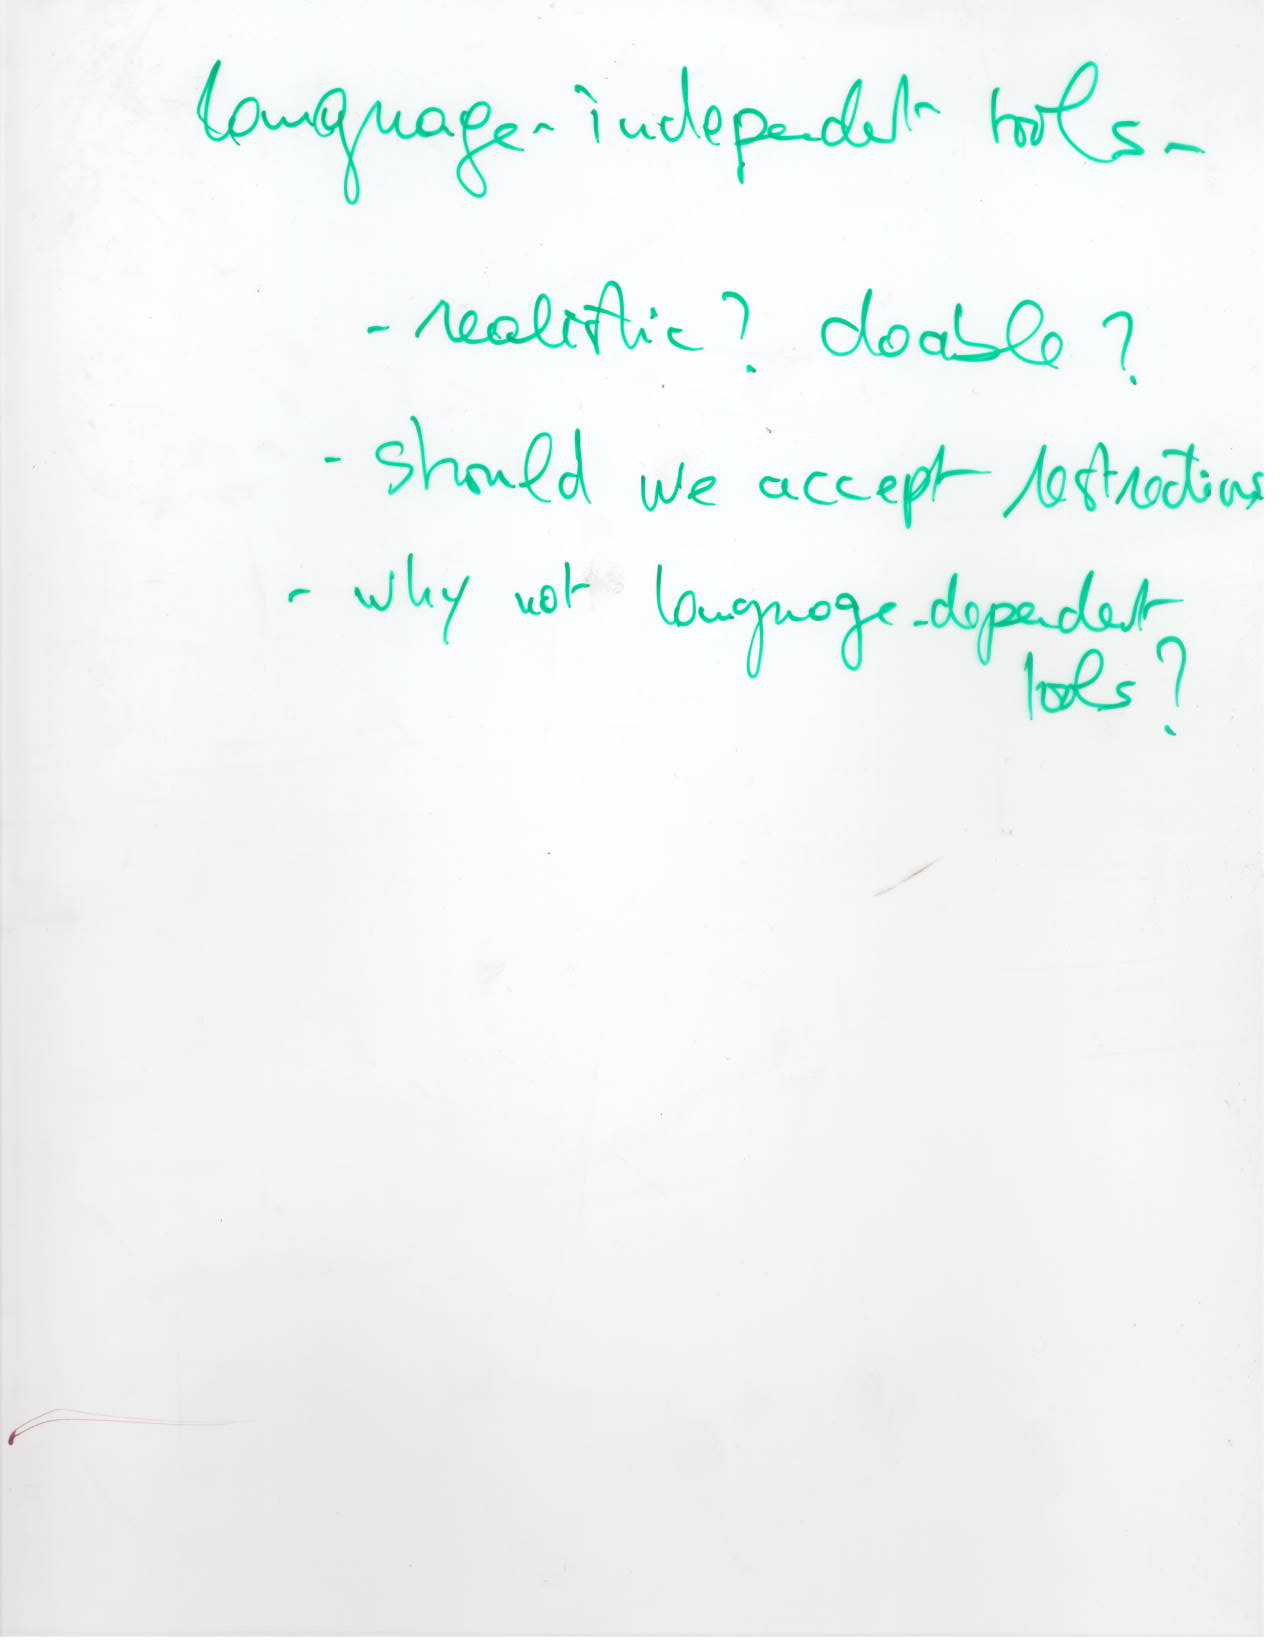 language-independent tools -
- realistic? doable?
- should we accept restrictions
- why not language-dependent
tools?